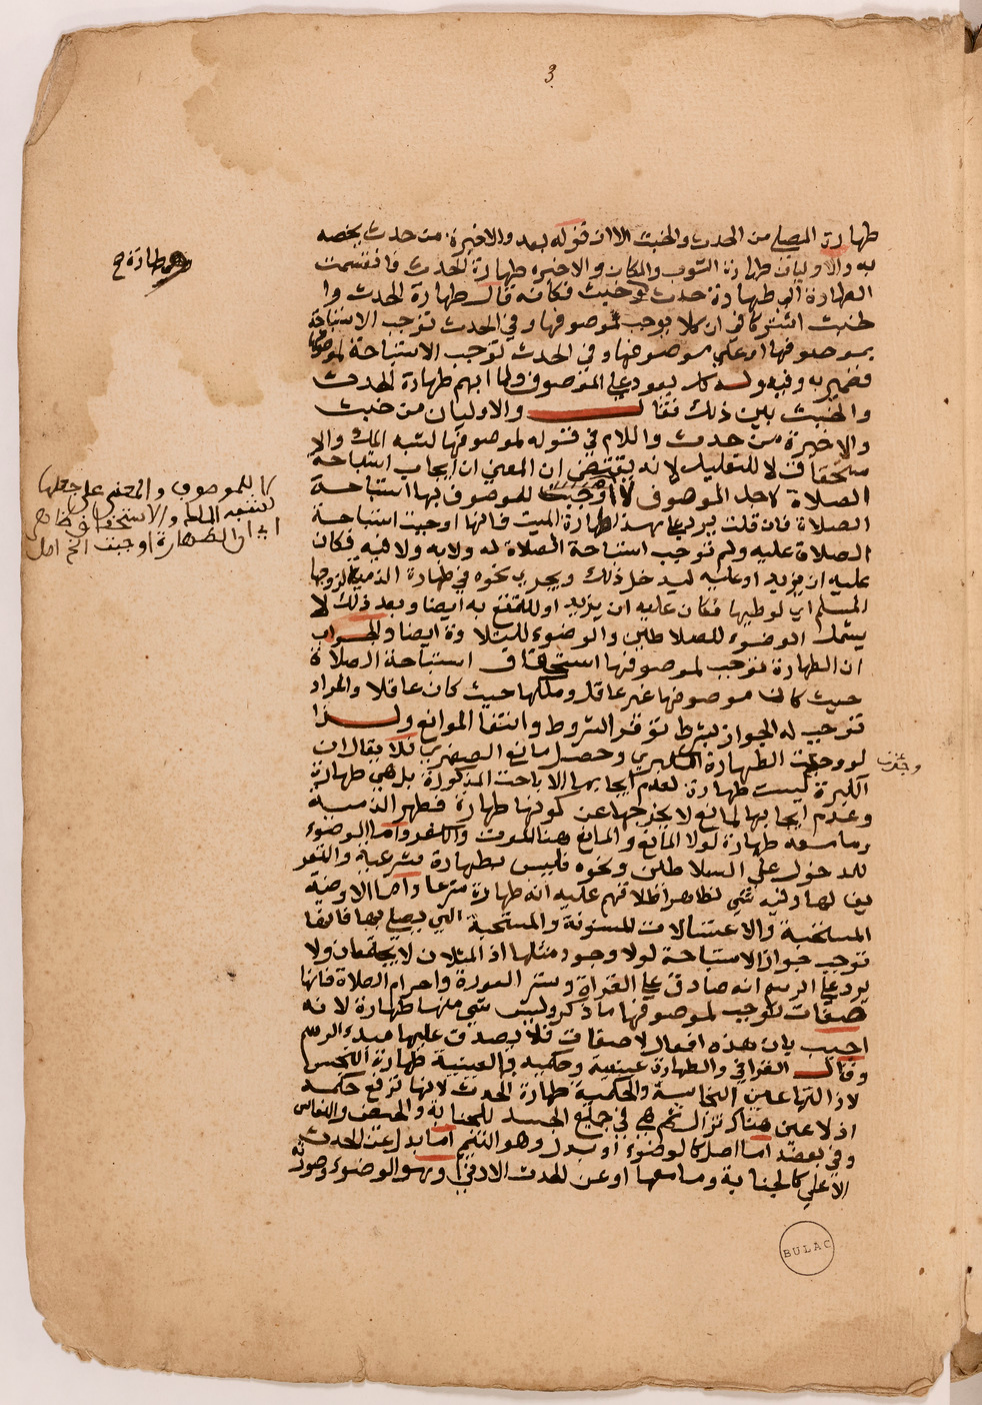 3
طهارة المصلي من الحدث والخبث الا ان قوله بعد والاخيرة من حدث يخصه
به والاوليان طهارة الثوب والمكان والاخيره طهارة الحدث فانقسمت
الطهارة الى طهارة حدث وخبث فكانه قال طهارة الحدث وا
لخبث اشتركا في ان كلا يوجب لموصوفها وفي الحدث توجب الاستباحة
بموصوفها او على موصوفها وفي الحدث توجب الاستباحة لموصوفها
فضمير به وفيه وله كل يعود على الموصوف ولما ابهم طهارة الحدث
والخبث بين ذلك فقال والاوليان من خبث
والاخيرة من حدث واللام في قوله لموصوفها لشبه الملك والا
ستحقاق لا للتعليل لانه يقتضي ان المعنى ان ايجاب استباحة
الصلاة لاجل الموصوف لا اوجبت للموصوف بها استباحة
الصلاة فان قلت يرد على هذا طهارة الميت فانها اوجبت استباحة
الصلاة عليه ولم توجب استباحة الصلاة له ولا به ولا فيه فكان
عليه ان يزيد او عليه ليدخل ذلك ويجري نحوه في طهارة الذمية لزوجها
المسلم اي لوطيها فكان عليه ان يزيد او للتمتع به ايضا وبعد ذلك لا
يشمل الوضوء للسلاطين والوضوء للتلاوة ايضا والجواب
ان الطهارة توجب لموصوفها استحقاق استباحة الصلاة
حيث كان موصوفها غير عاقل وملكها حيث كان عاقلا والمراد
توجب له الجواز بشرط توفر الشروط وانتفا الموانع ولذا
لو وجدت الطهارة الكبرى وحصل مانع الصغرى فلا يقال ان
الكبرة ليست طهارة لعدم ايجابها الاباحت المذكورة بل هي طهارة
وعدم ايجابها لمانع لا يخرجها عن كونها طهارة فطهر الذمية
وما معه طهارة لولا المانع والمانع هنا الموت والكفر واما الوضوء
للدخول على السلاطين ونحوه فليس بطهارة شرعية والتعر
يف لها وفيه شي لظاهر اطلاقهم عليه انه طهارة شرعا واما الاوضية
المستحبة والاغتسالات المسنونة والمستحبة التي يصلي بها فانها
توجب جواز الاستباحة لولا وجود مثلها اذ المثلان لا يجتمعان ولا
يرد على الرسم انه صادق على القراة وستر العورة واحرام الصلاة فانها
صفات توجب لموصوفها ما ذكر وليس شي منها طهارة لانه
اجيب بان هذه افعال لا صفات فلا يصدق عليها مبدء الرسم
وقال القرافي والطهارة عينية وحكمية فالعينية طهارة الخبث
لازالتها عين النجاسة والحكمية طهارة الحدث لانها ترفع حكمه
اذ لا عين هناك تزال ثم هي في جميع الجسد للجنابة والحيض والنفاس
وفي بعضه اما اصل كالوضوء او بدل وهو التيمم اما بدل عن الحدث
الاعلى كالجنابة وما معها او عن الحدث الادنى وهو الوضوء وصورته
طهارة ح
لا للموصوف والمعنى على جعلها
لشبه الملك والاستحقاق ظاهر
اي ان الطهارة اوجبت الخ اصل
وجدت
BULAC